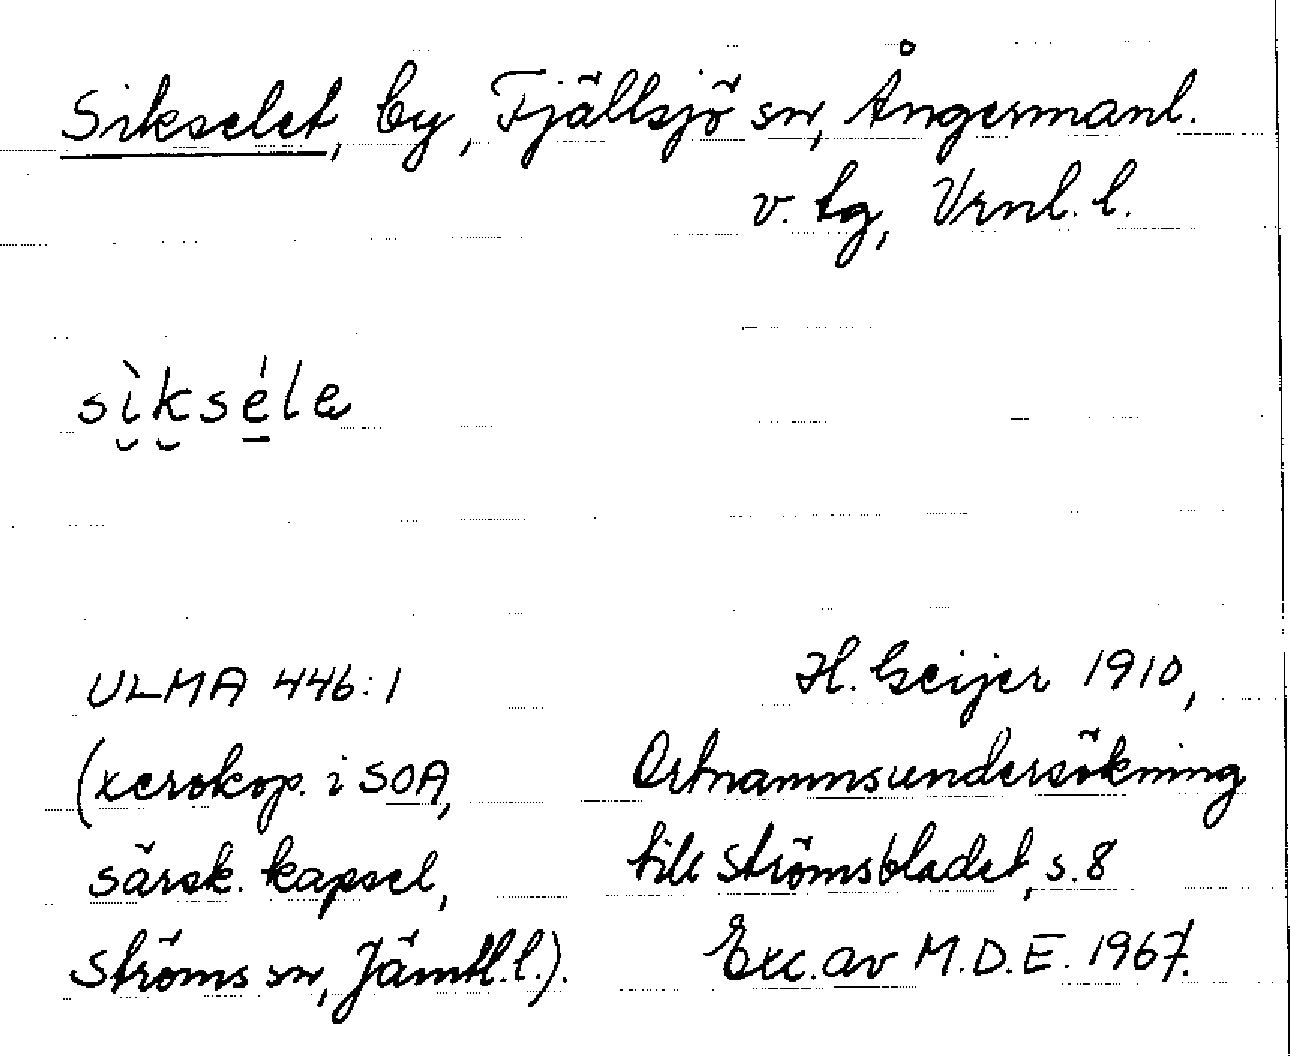 Sikselet, by, Fjällsjö sn, Ångermanl.
v. tg, Vrnl. l.
sìkséle
ULMA 446:1
(xerokop. i SOA,
särsk. kapsel,
Ströms sn, Jämtl. l.).
H. Geijer 1910,
Ortnamnsundersökning
till Strömsbladet, s. 8
Exc. av M.D.E. 1967.